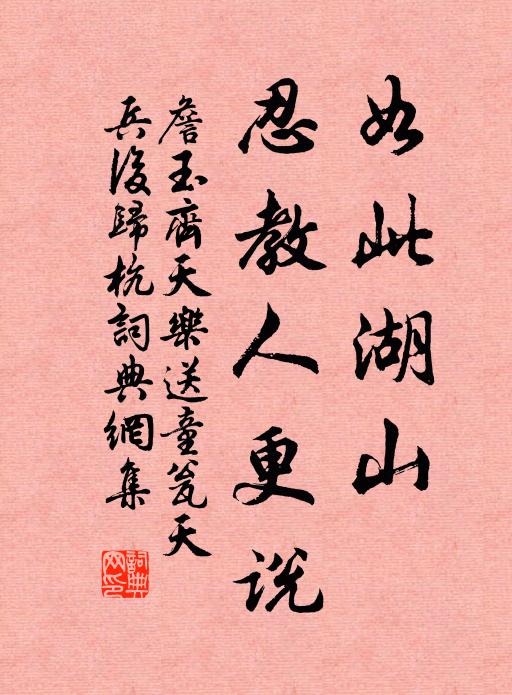 如此湖山
忍教人更説
詹玉齊天樂送童瓮天
兵後歸杭詞典網集
詞典
网印